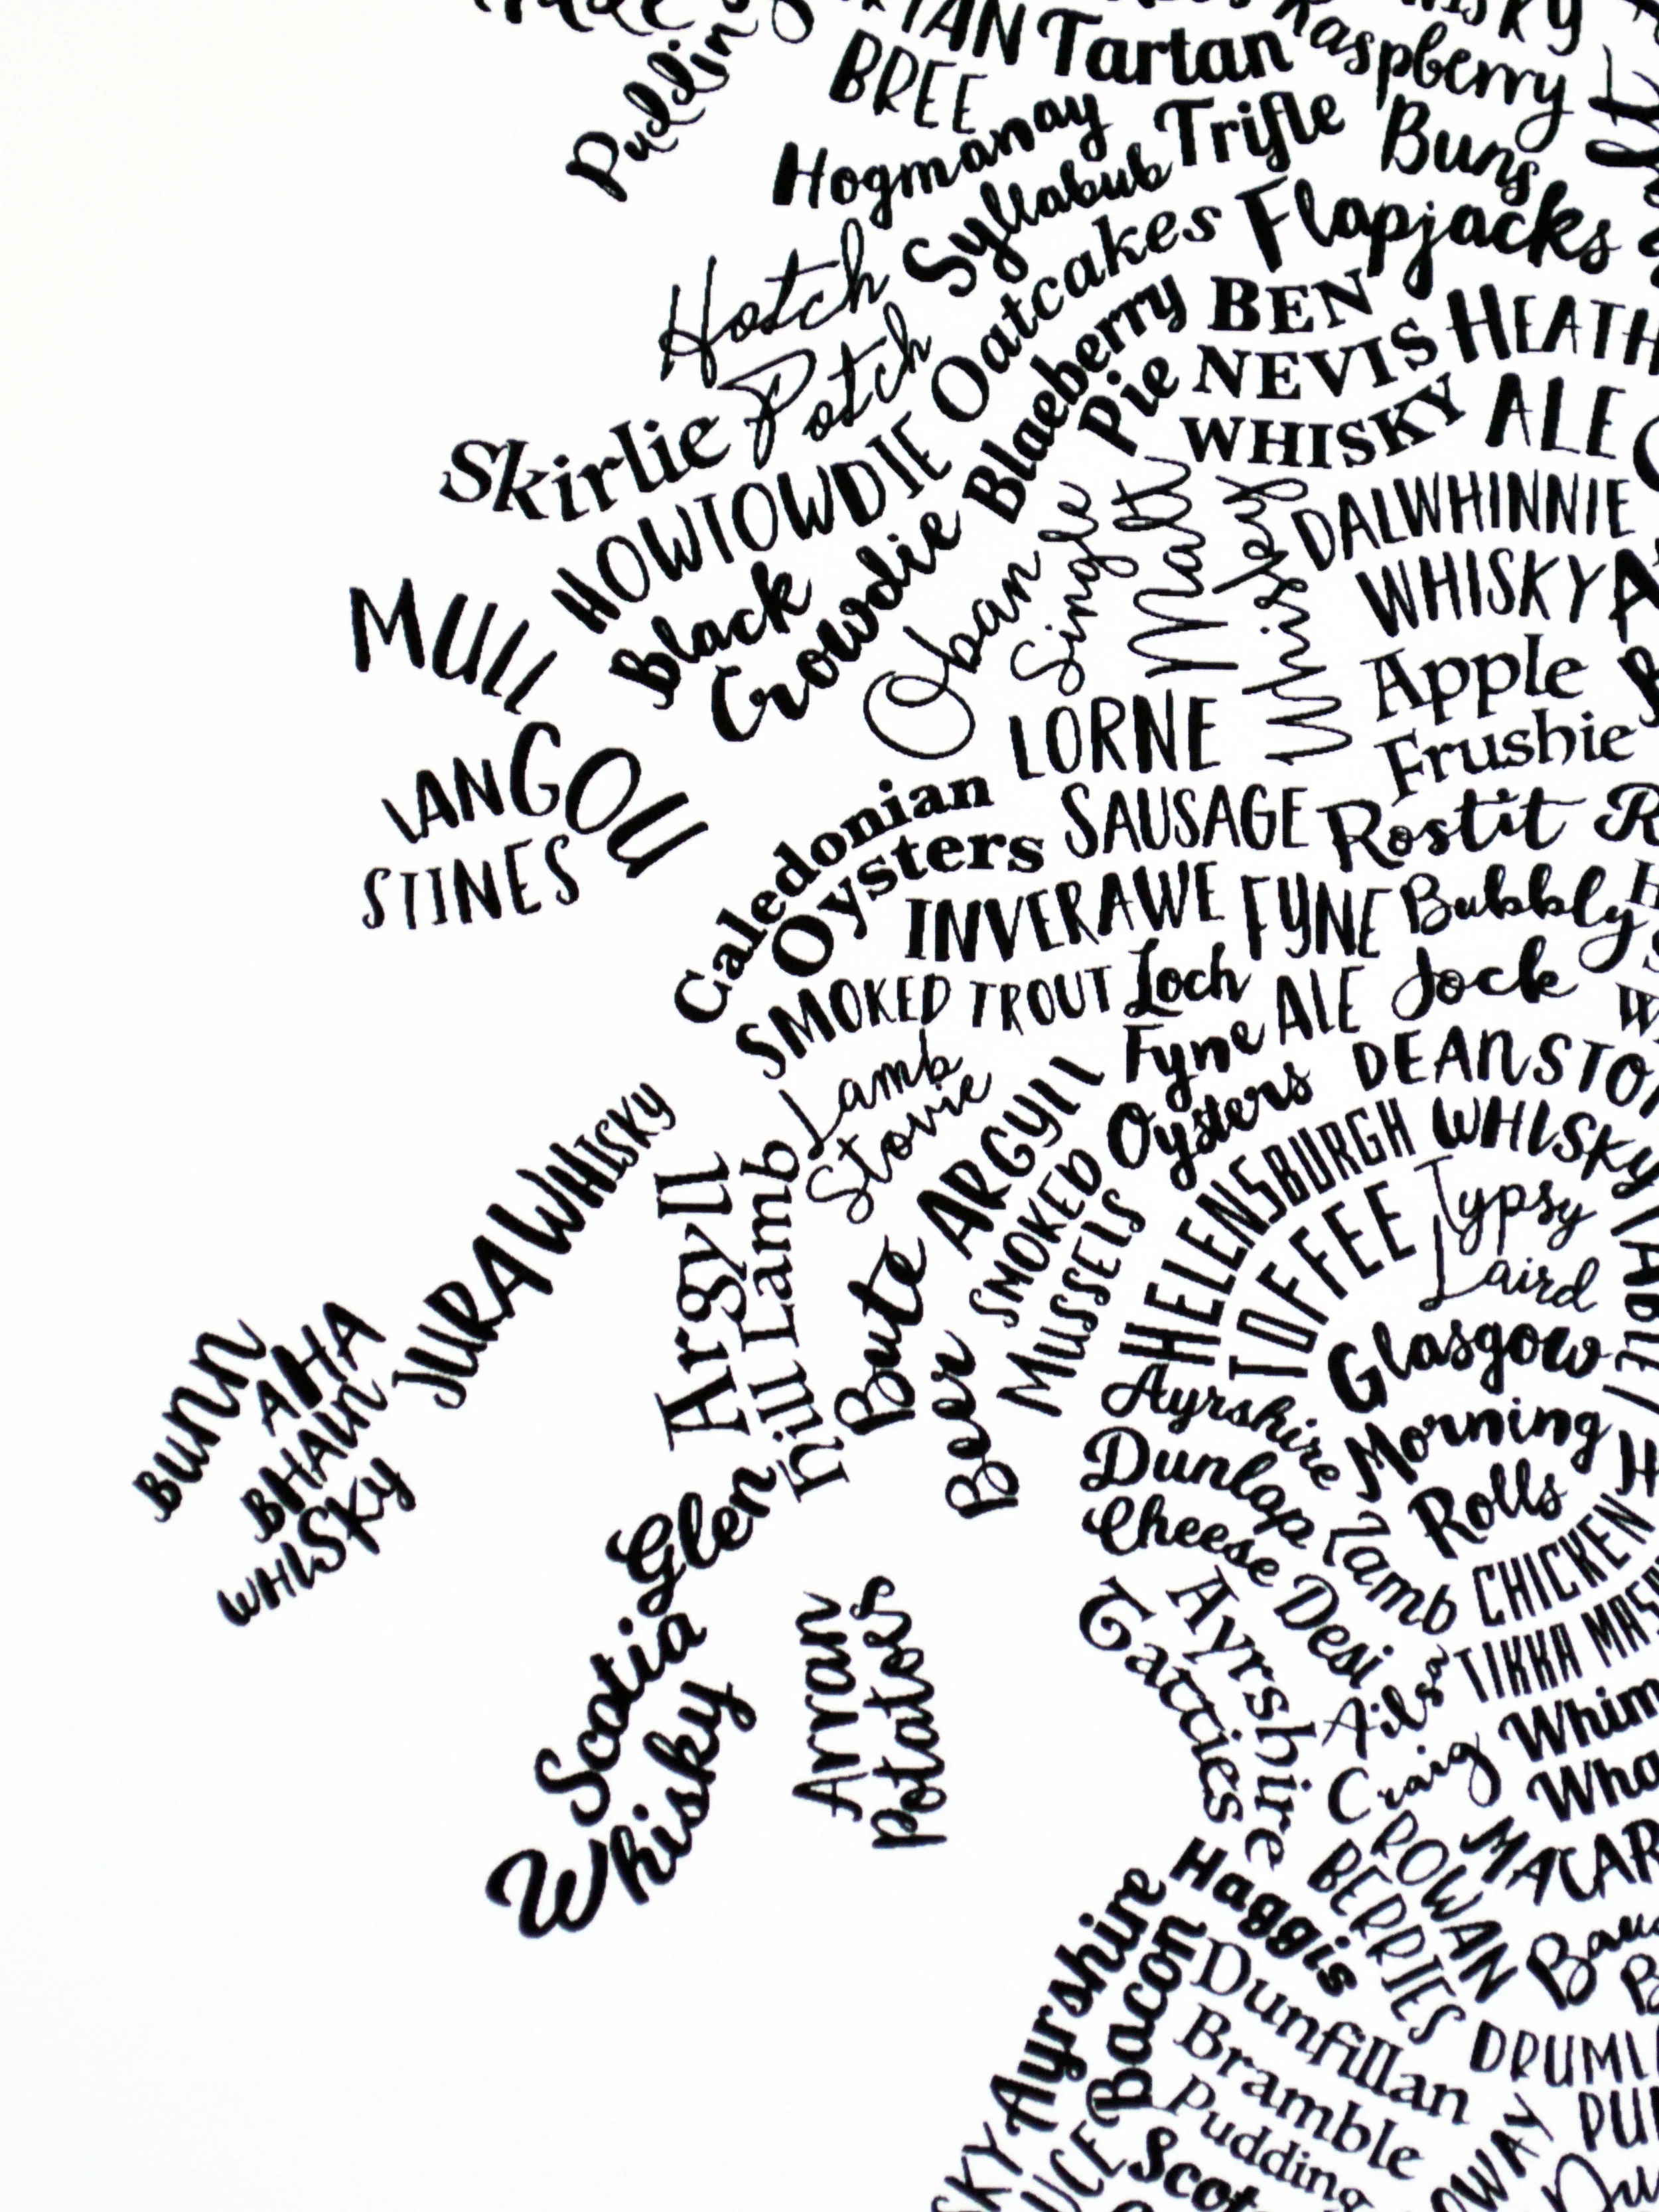 Pudding
Tartan
BREE
Raspberry
Hogmanay
Trifle
Buns
Syllabub
Hotch
Potch
Oatcakes
Flapjacks
Blaeberry
Pie
BEN
NEVIS
WHISKY
ALE
Skirlie
HOWTOWDIE
Black
Crowdie
Oban
Single
Malt
Whisky
DALWHINNIE
WHISKY
MULL
LANGOU
STINES
Apple
Frushie
LORNE
SAUSAGE
Caledonian
Oysters
Rostit
INVERAWE
SMOKED TROUT
FYNE
ALE
Bubbly
Jock
Loch
Fyne
Oysters
Lamb
Stovie
ARGYLL
SMOKED
MUSSELS
HELENSBURGH
TOFFEE
WHISKY
Typsy
Laird
JURA WHISKY
Argyll
hill Lamb
Bute
Beer
BUNN
AHA
BHAIN
WHISKY
Glasgow
Morning
Rolls
Ayrshire
Dunlop
Cheese
Glen
Scotia
Whisky
Arran
Potatoes
Lamb
Desi
CHICKEN
TIKKA
Ayrshire
Tatties
Ailsa
Craig
ROWAN
BERRIES
Haggis
Ayrshire
Bacon
Dunfillan
Bramble
Pudding